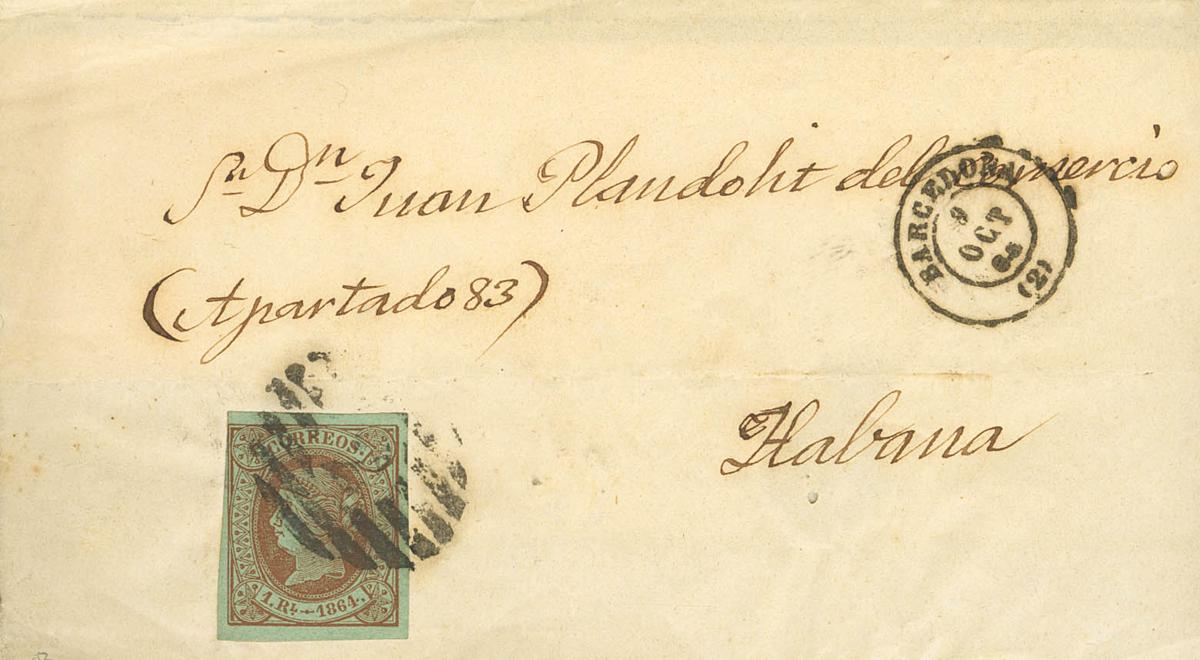 Sr. Dn. Juan Plandolit del Comercio
BARCELONA
9
OCT
(2)
(Apartado 83)
Habana
CORREOS.
1. RL. - 1864.